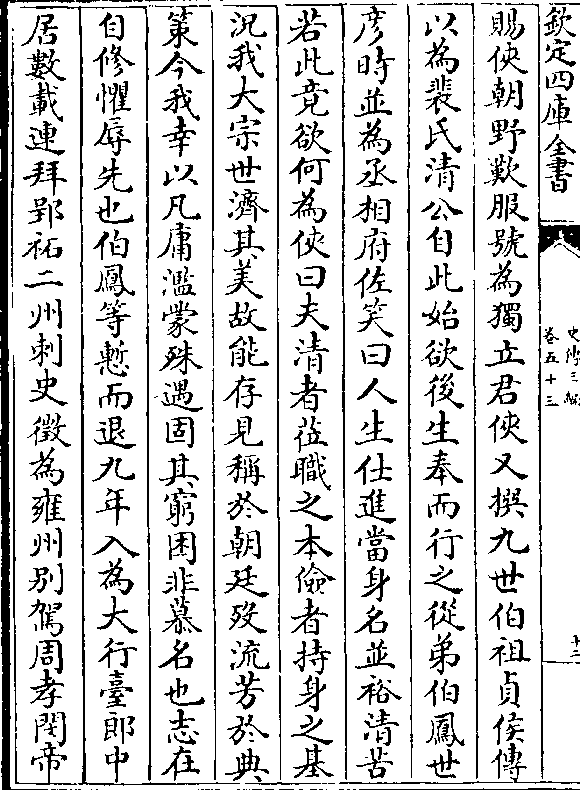 欽定四庫全書
史傳三編
卷五十三
十二
賜俠朝野歎服號為獨立君俠又撰九世伯祖貞侯傳
以為裴氏清公自此始欲後生奉而行之從弟伯鳳世
彦時並為丞相府佐笑曰人生仕進當身名並裕清苦
若此竟欲何為俠曰夫清者莅職之本儉者持身之基
況我大宗世濟其美故能存見稱於朝廷歿流芳於典
策今我幸以凡庸濫蒙殊遇固其窮困非慕名也志在
自修懼辱先也伯鳳等慙而退九年入為大行臺郎中
居數載連拜郢祏二州刺史徵為雍州別駕周孝閔帝